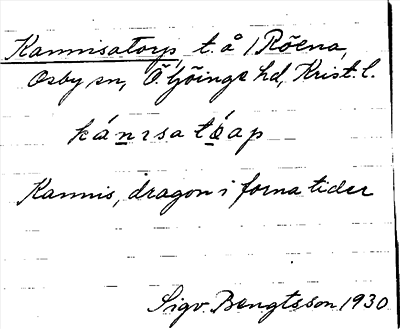 Kannisatorp t. å /Röena,
Osby sn, Ö Göinge hd, Krist. l.
kánɪsatóap
Kannis, dragon i forna tider
Sigv. Bengtsson 1930